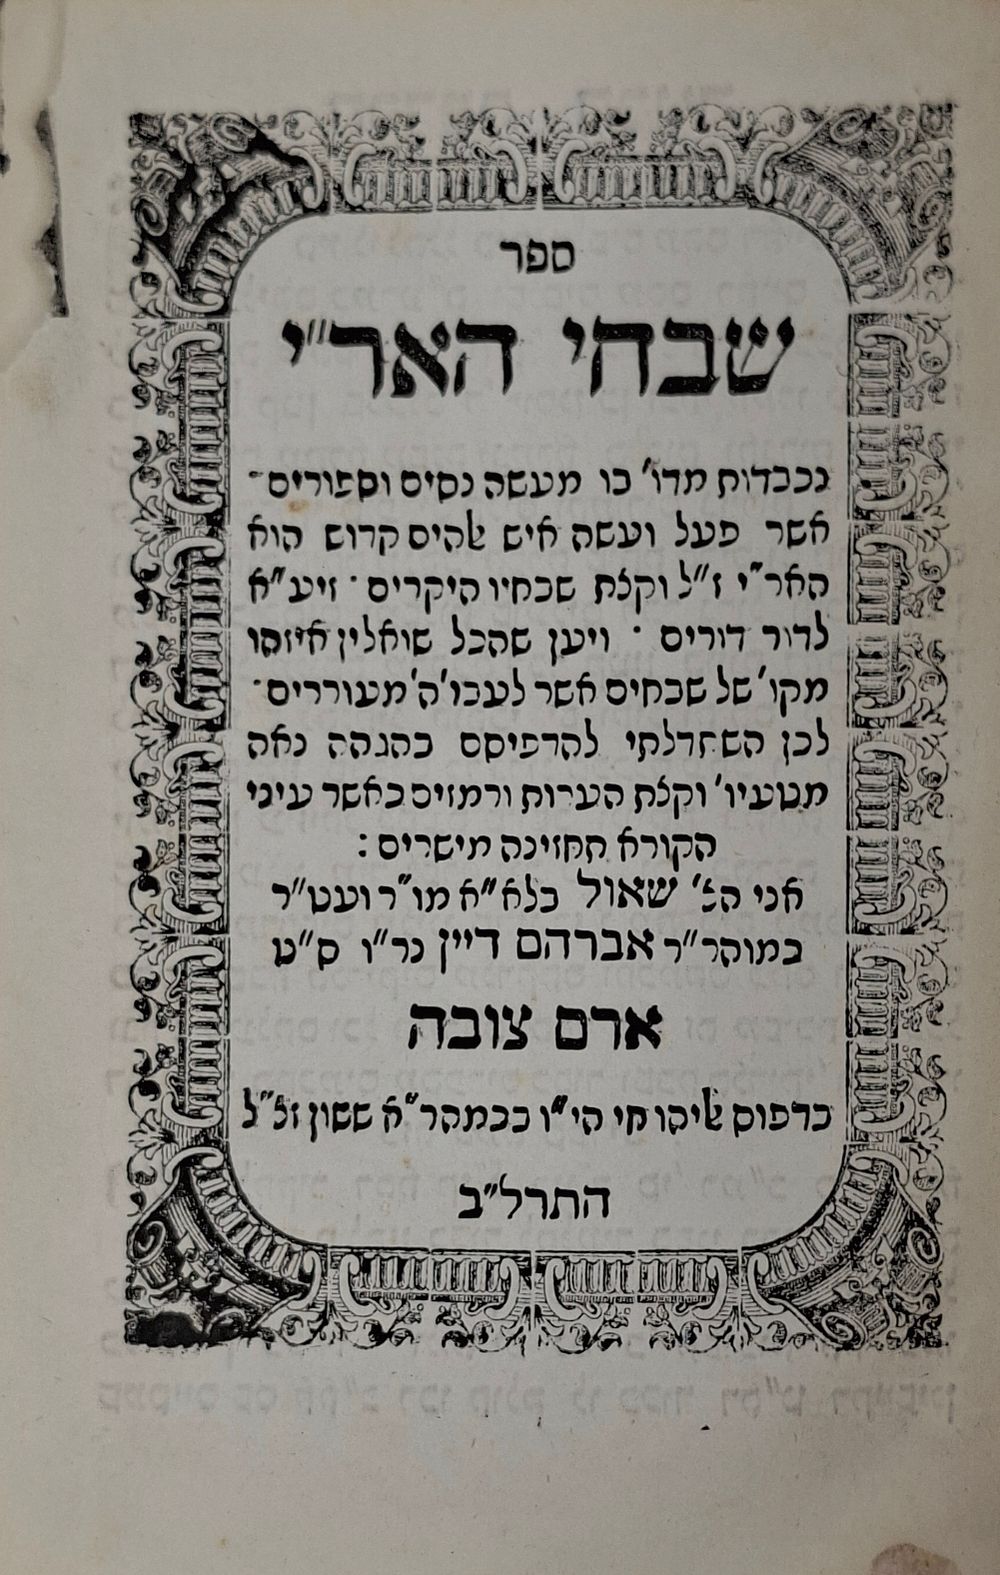 ספר
שבחי האר״י
נכבדות מדו׳ בו מעשה נסים וספורים־
אשר פעל ועשה איש אלהים קדוש הוא
האר״י ז״ל וקצת שבחיו היקרים · זיע״א
לדור דורים · ויען שהכל שואלין איזהו
מקו׳ של שבחים אשר לעבו׳ ה׳ מעוררים־
לכן השתדלתי להדפיסם בהגהה נאה
מטעיו׳ וקצת הערות ורמזים כאשר עיני
הקורא תחזינה מישרים :
אני הצ׳ שאול בלא״א מו״ר ועט״ר
כמוהר״ר אברהם דיין נר״ו ס״ט
ארם צובה
בדפוס אליהו חי הי״ו בכמהר״א ששון זצ״ל
התרל״ב